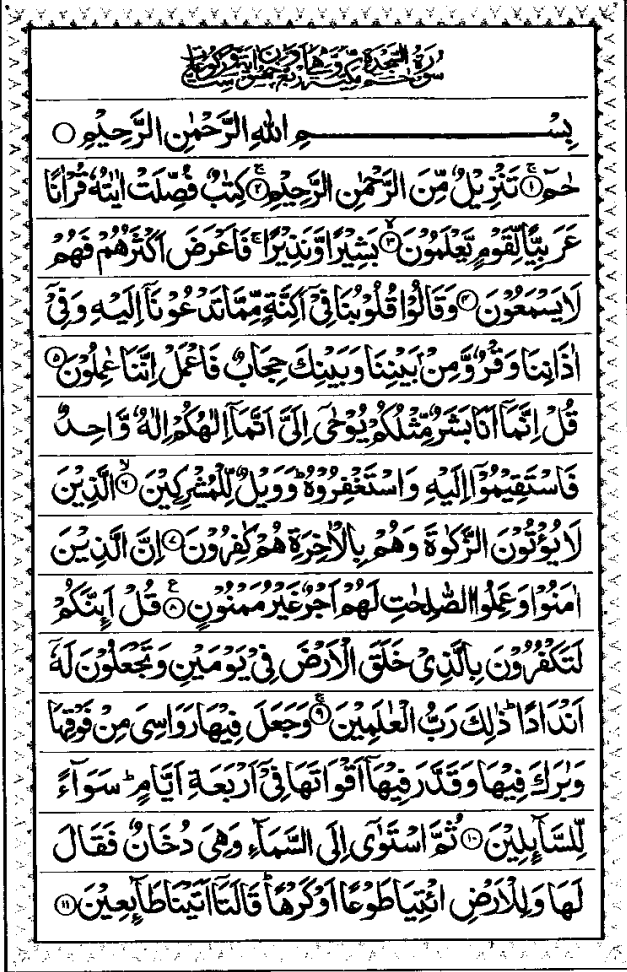 سورة حم السجدة مكية
بِسْمِ اللهِ الرَّحْمٰنِ الرَّحِيْمِ ○
حٰمٓ ۝۱ تَنْزِيْلٌ مِّنَ الرَّحْمٰنِ الرَّحِيْمِ ۝۲ كِتٰبٌ فُصِّلَتْ اٰيٰتُهٗ قُرْاٰنًا
عَرَبِيًّا لِّقَوْمٍ يَّعْلَمُوْنَ ۝۳ بَشِيْرًا وَّنَذِيْرًا ۚ فَاَعْرَضَ اَكْثَرُهُمْ فَهُمْ
لَا يَسْمَعُوْنَ ۝۴ وَقَالُوْا قُلُوْبُنَا فِيْٓ اَكِنَّةٍ مِّمَّا تَدْعُوْنَآ اِلَيْهِ وَفِيْٓ
اٰذَانِنَا وَقْرٌ وَّمِنْۢ بَيْنِنَا وَبَيْنِكَ حِجَابٌ فَاعْمَلْ اِنَّنَا عٰمِلُوْنَ ۝۵
قُلْ اِنَّمَآ اَنَا بَشَرٌ مِّثْلُكُمْ يُوْحٰٓى اِلَيَّ اَنَّمَآ اِلٰهُكُمْ اِلٰهٌ وَّاحِدٌ
فَاسْتَقِيْمُوْٓا اِلَيْهِ وَاسْتَغْفِرُوْهُ ؕ وَوَيْلٌ لِّلْمُشْرِكِيْنَ ۝۶ الَّذِيْنَ
لَا يُؤْتُوْنَ الزَّكٰوةَ وَهُمْ بِالْاٰخِرَةِ هُمْ كٰفِرُوْنَ ۝۷ اِنَّ الَّذِيْنَ
اٰمَنُوْا وَعَمِلُوا الصّٰلِحٰتِ لَهُمْ اَجْرٌ غَيْرُ مَمْنُوْنٍ ۝۸ قُلْ اَئِنَّكُمْ
لَتَكْفُرُوْنَ بِالَّذِيْ خَلَقَ الْاَرْضَ فِيْ يَوْمَيْنِ وَتَجْعَلُوْنَ لَهٗٓ
اَنْدَادًا ؕ ذٰلِكَ رَبُّ الْعٰلَمِيْنَ ۝۹ وَجَعَلَ فِيْهَا رَوَاسِيَ مِنْ فَوْقِهَا
وَبٰرَكَ فِيْهَا وَقَدَّرَ فِيْهَآ اَقْوَاتَهَا فِيْٓ اَرْبَعَةِ اَيَّامٍ ؕ سَوَآءً
لِّلسَّآئِلِيْنَ ۝۱۰ ثُمَّ اسْتَوٰٓى اِلَى السَّمَآءِ وَهِيَ دُخَانٌ فَقَالَ
لَهَا وَلِلْاَرْضِ ائْتِيَا طَوْعًا اَوْ كَرْهًا ؕ قَالَتَآ اَتَيْنَا طَآئِعِيْنَ ۝۱۱